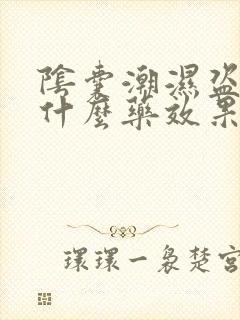 陰囊潮濕盜
什麼藥效果
環環一裊楚宮